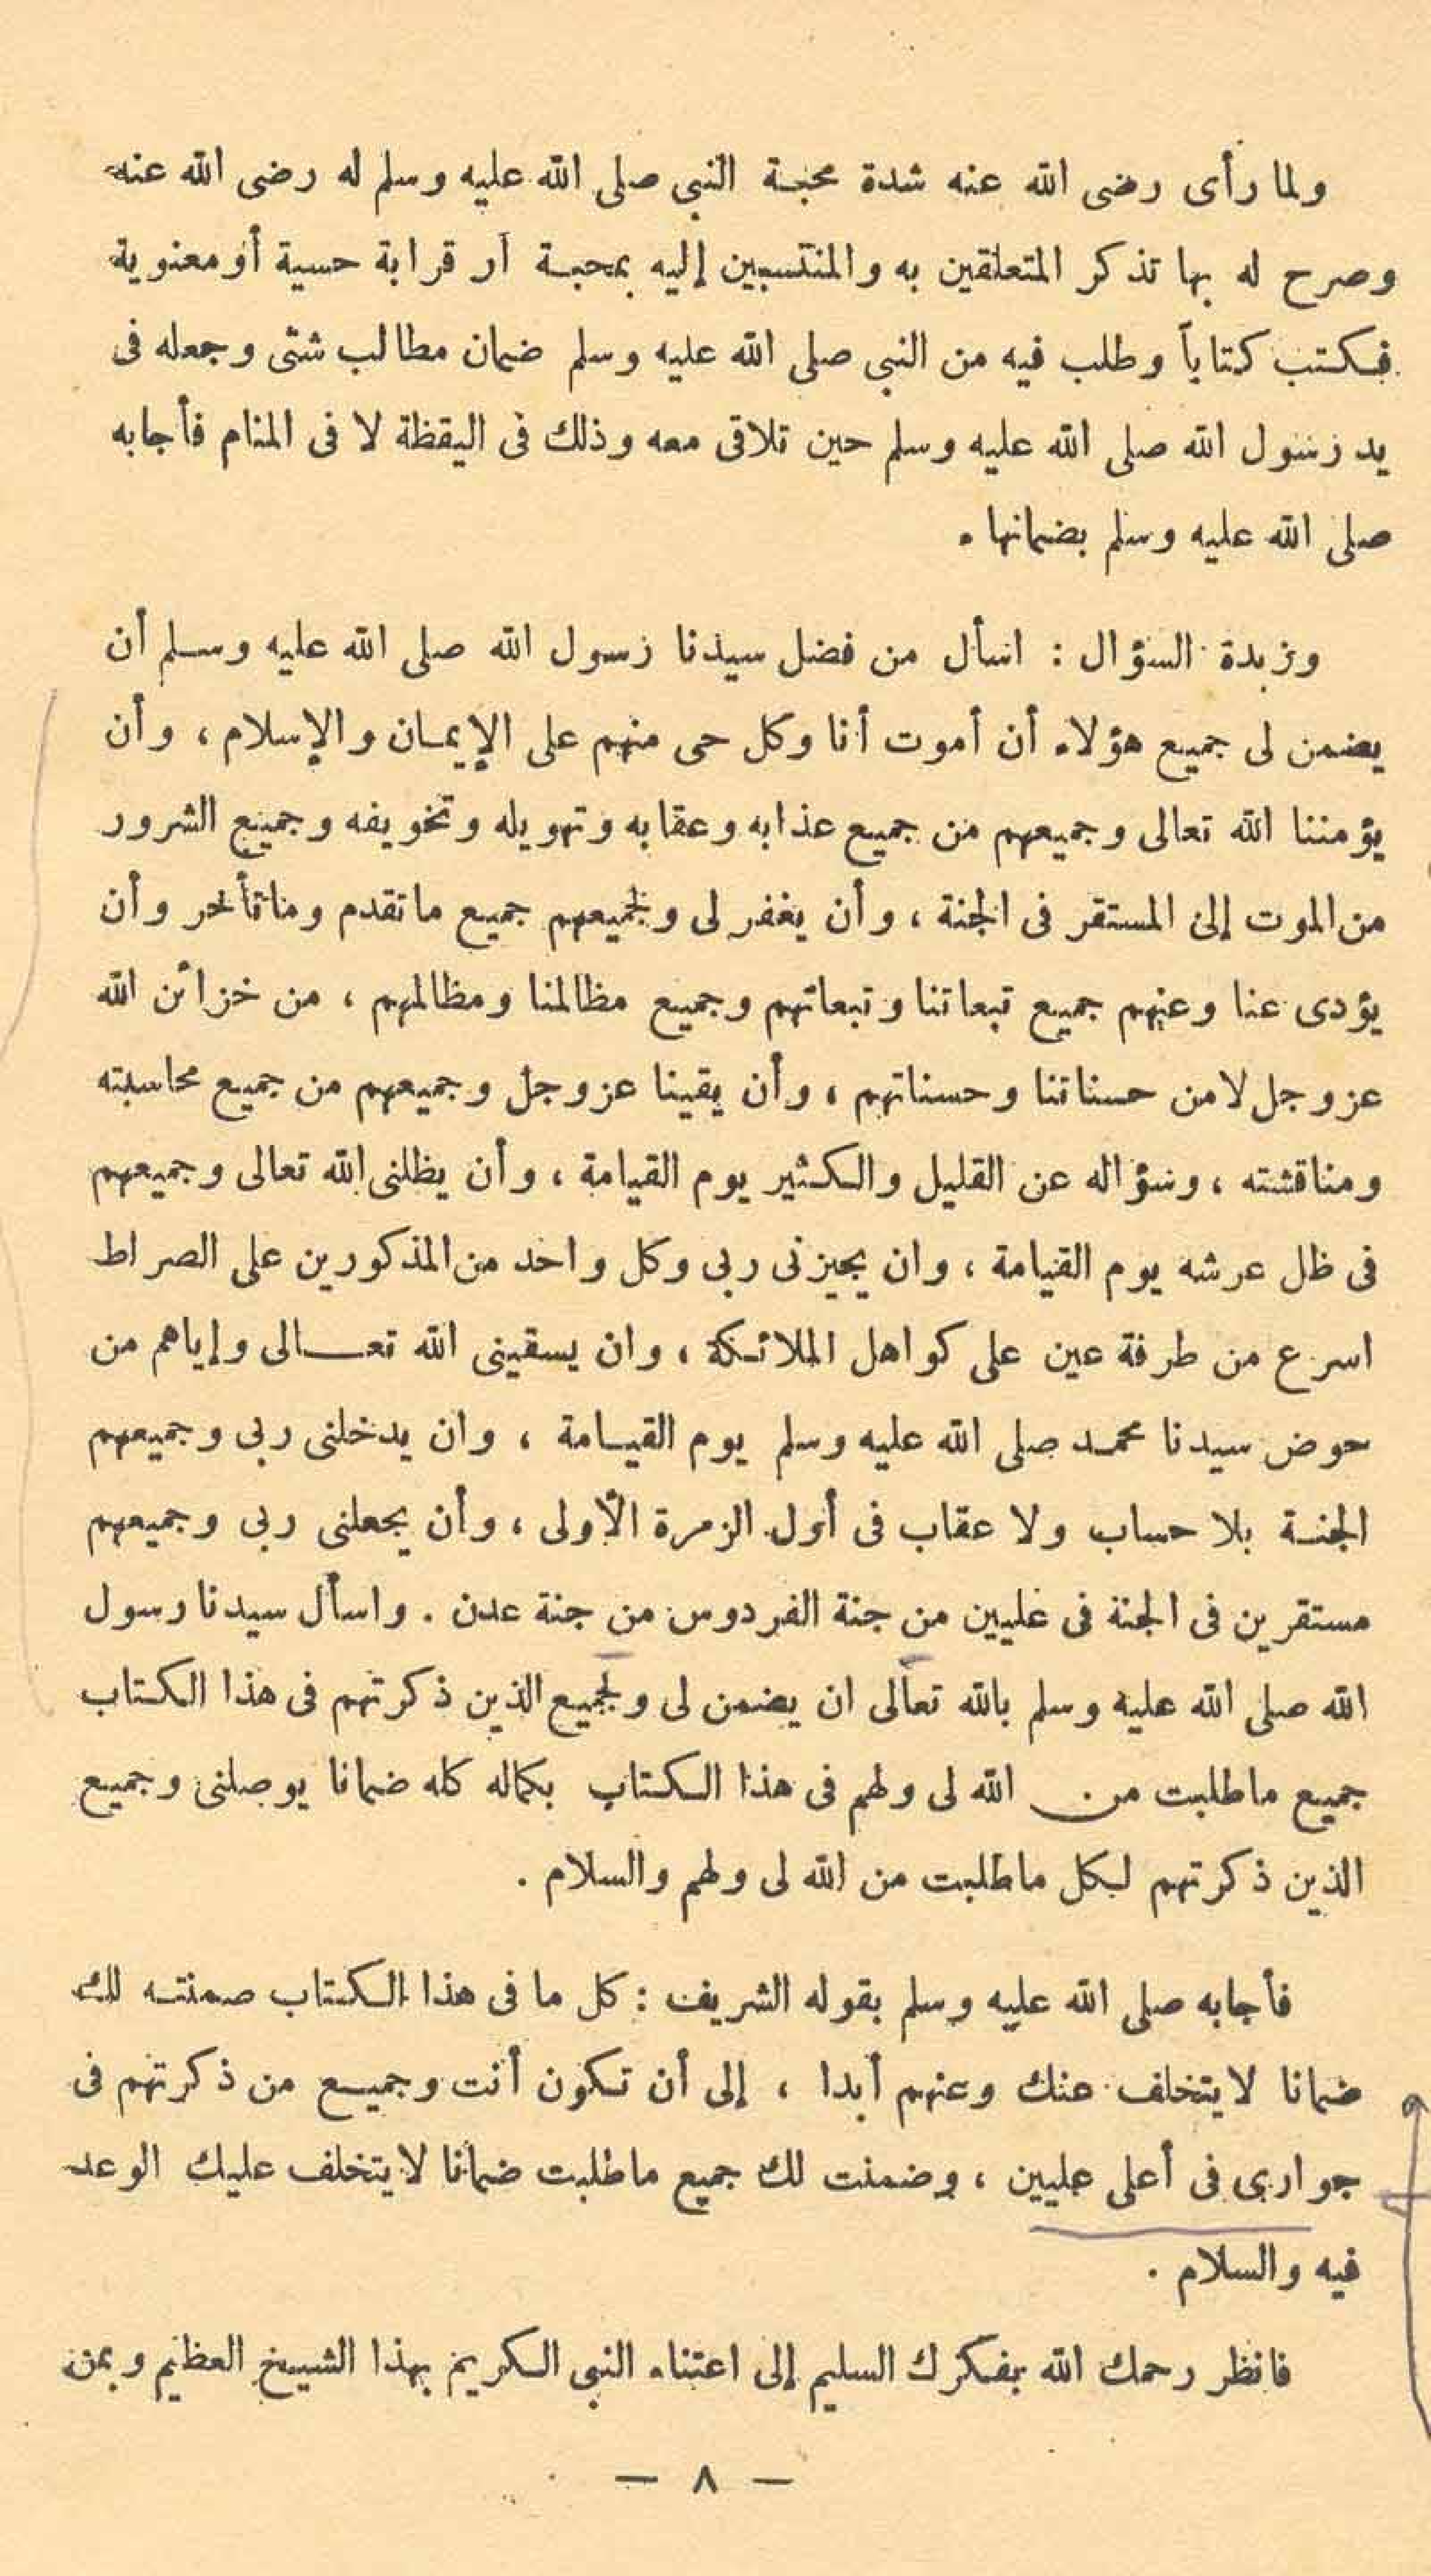 ولما رأى رضى الله عنه شدة محبة النبي صلى الله عليه وسلم له رضى الله عنه
وصرح له بها تذكر المتعلقين به والمنتسبين إليه بمحبة أو قرابة حسية أو معنوية
فكتب كتاباً وطلب فيه من النبي صلى الله عليه وسلم ضمان مطالب شتى وجعله فى
يد رسول الله صلى الله عليه وسلم حين تلاقى معه وذلك فى اليقظة لا فى المنام فأجابه
صلى الله عليه وسلم بضمانها .
وزبدة السؤال : اسأل من فضل سيدنا رسول الله صلى الله عليه وسلم أن
يضمن لى جميع هؤلاء أن أموت أنا وكل حى منهم على الإيمان والإسلام ، وأن
يؤمننا الله تعالى وجميعهم من جميع عذابه وعقابه وتهويله وتخويفه وجميع الشرور
من الموت إلى المستقر فى الجنة ، وأن يغفر لى ولجميعهم جميع ما تقدم وما تأخر وأن
يؤدى عنا وعنهم جميع تبعاتنا وتبعاتهم وجميع مظالمنا ومظالمهم ، من خزائن الله
عز وجل لا من حسناتنا وحسناتهم ، وأن يقينا عز وجل وجميعهم من جميع محاسبته
ومناقشته ، وسؤاله عن القليل والكثير يوم القيامة ، وأن يظلنى الله تعالى وجميعهم
فى ظل عرشه يوم القيامة ، وان يجيزنى ربى وكل واحد من المذكورين على الصراط
اسرع من طرفة عين على كواهل الملائكة ، وان يسقينى الله تعالى وإياهم من
حوض سيدنا محمد صلى الله عليه وسلم يوم القيامة ، وان يدخلنى ربى وجميعهم
الجنة بلا حساب ولا عقاب فى أول الزمرة الأولى ، وأن يجعلنى ربى وجميعهم
مستقرين فى الجنة فى عليين من جنة الفردوس من جنة عدن . واسأل سيدنا رسول
الله صلى الله عليه وسلم بالله تعالى ان يضمن لى ولجميع الذين ذكرتهم فى هذا الكتاب
جميع ما طلبت من الله لى ولهم فى هذا الكتاب بكماله كله ضمانا يوصلنى وجميع
الذين ذكرتهم لكل ما طلبت من الله لى ولهم والسلام .
فأجابه صلى الله عليه وسلم بقوله الشريف : كل ما فى هذا الكتاب ضمنته لك
ضمانا لا يتخلف عنك وعنهم أبدا ، إلى أن تكون أنت وجميع من ذكرتهم فى
جوارى فى أعلى عليين ، وضمنت لك جميع ما طلبت ضمانا لا يتخلف عليك الوعد
فيه والسلام .
فانظر رحمك الله بفكرك السليم إلى اعتناء النبى الكريم بهذا الشيخ العظيم وبمن
— ٨ —